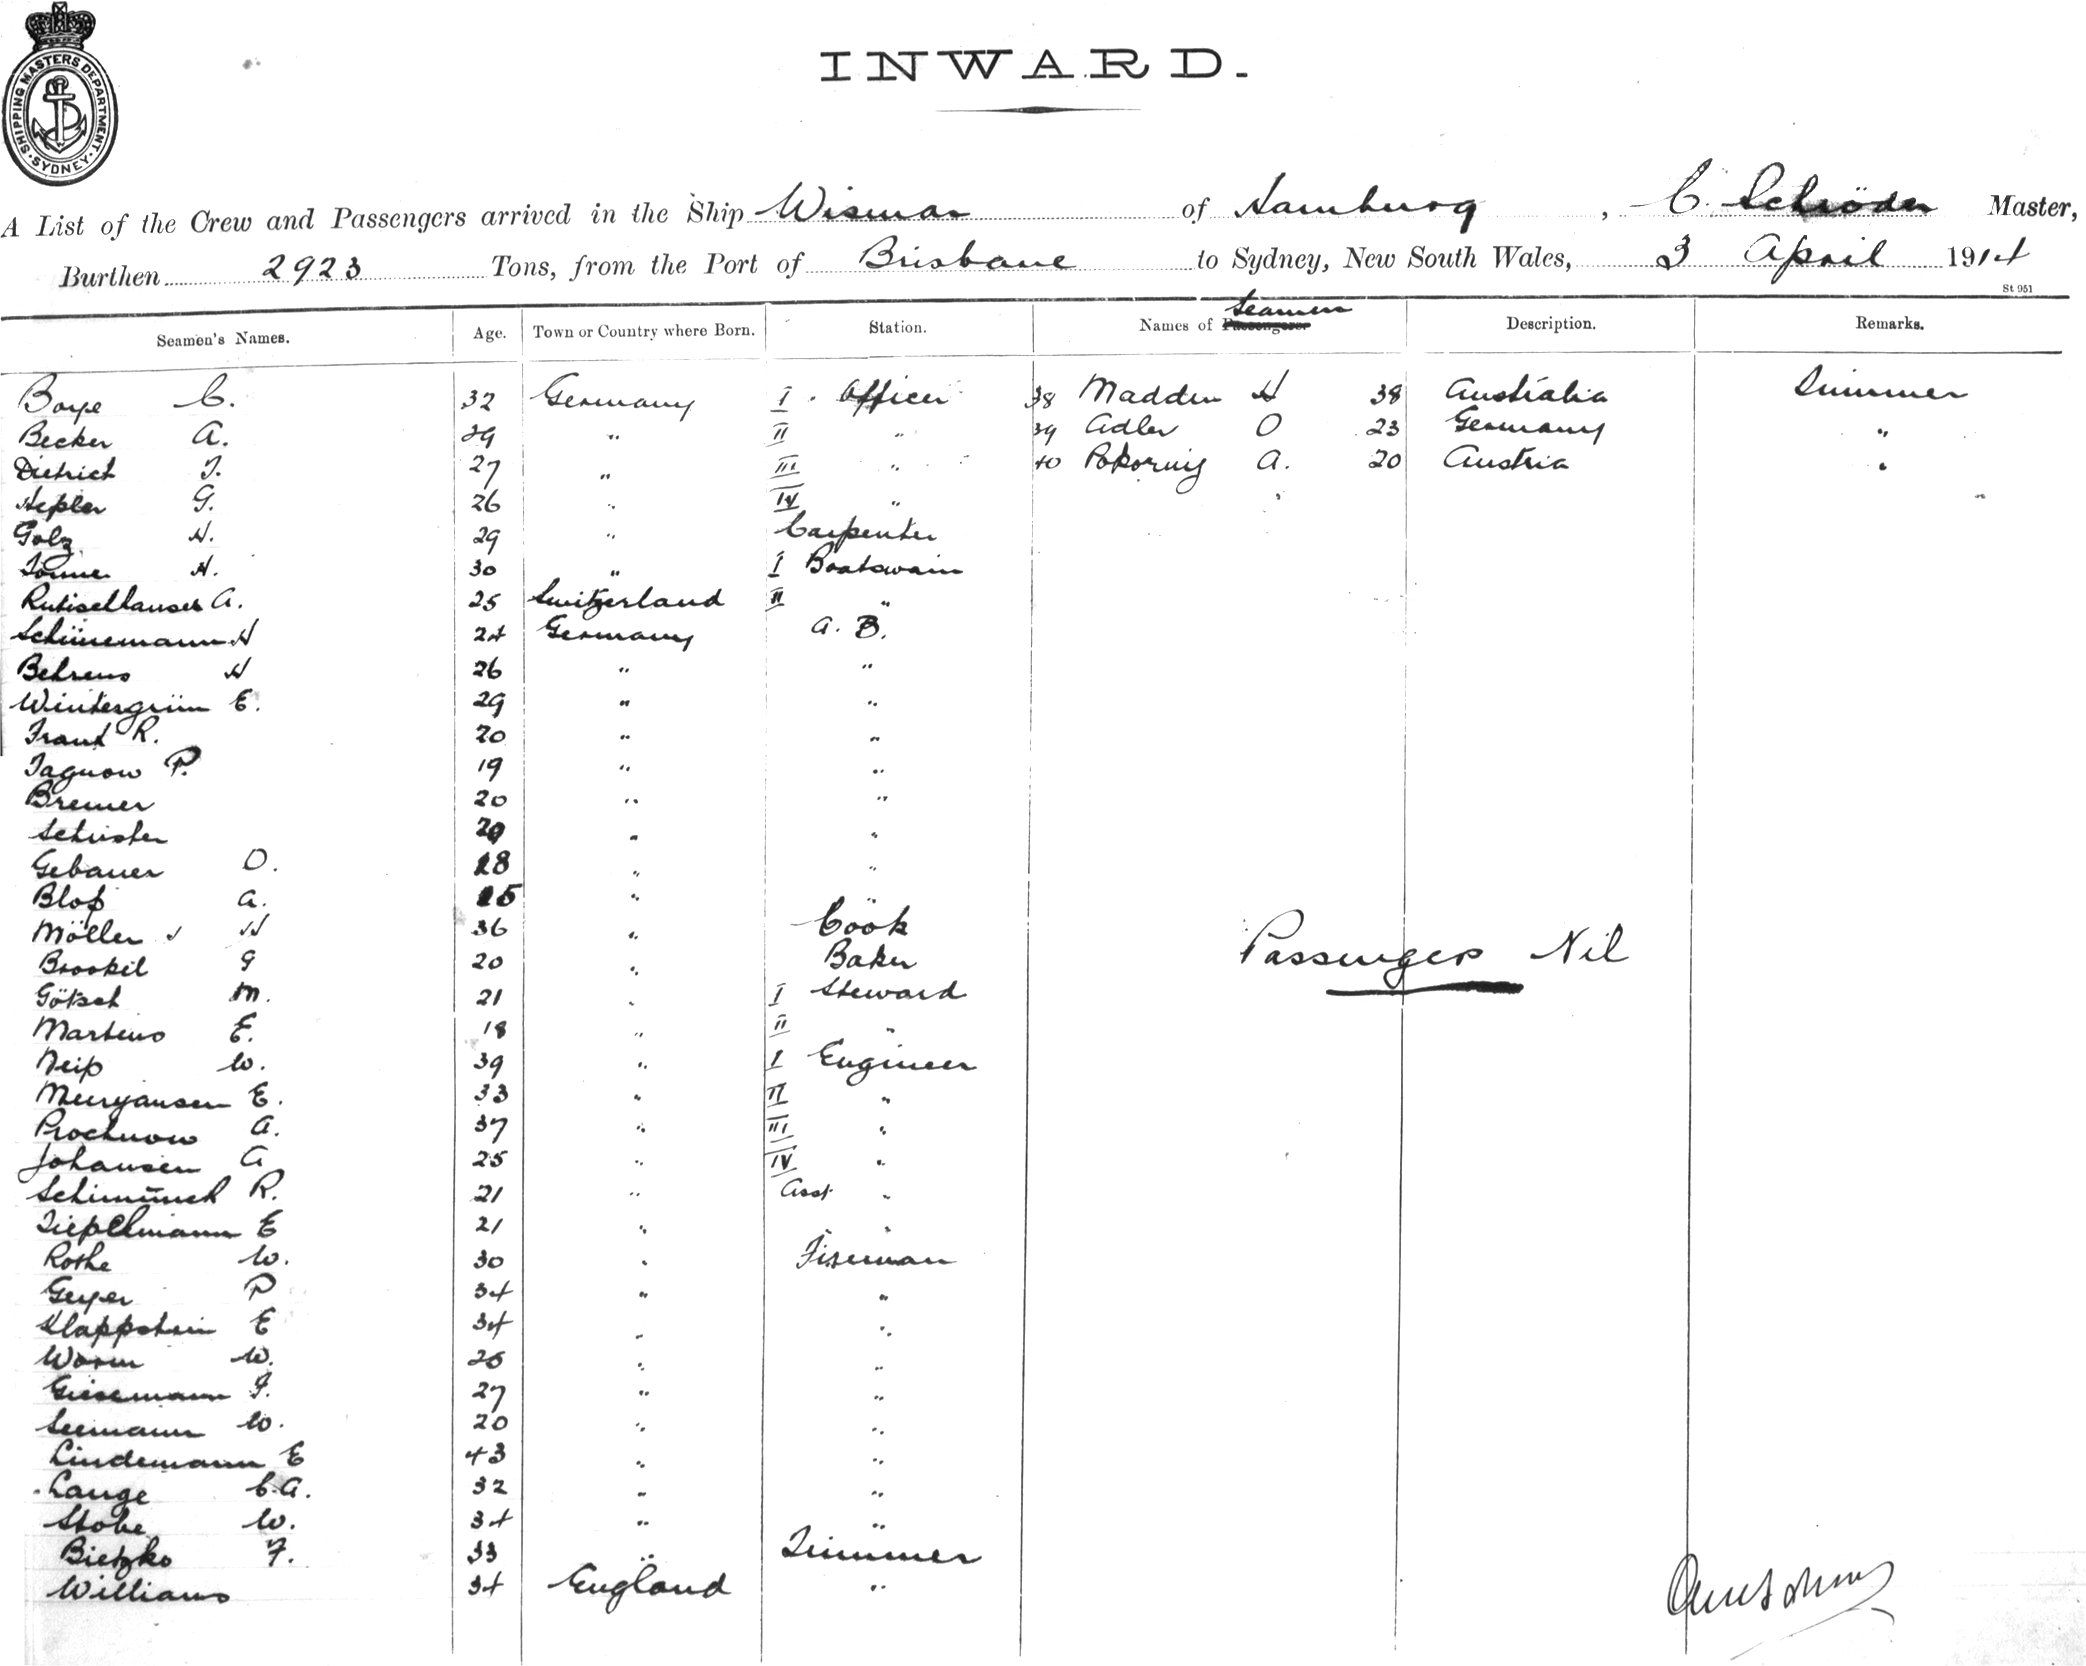 SHIPPING MASTERS DEPARTMENT. SYDNEY.
INWARD.
A List of the Crew and Passengers arrived in the Ship Wismar of Hamburg, C. Schröder Master,
Burthen 2923 Tons, from the Port of Brisbane to Sydney, New South Wales, 3 April 1914
St 951
Seamen's Names. Age. Town or Country where Born. Station. Names of Passengers. Seamen Description. Remarks.
Boye C. 32 Germany I. Officer 38 Madden H 38 Australia Trimmer
Becker A. 29 " II " 39 Adler O 23 Germany "
Dietrich T. 27 " III " 40 Pokorny A. 20 Austria "
Hepler G. 26 " IV "
Golz H. 29 " Carpenter
Tonne H. 30 " I Boatswain
Rutishauser A. 25 Switzerland II "
Schünemann H 24 Germany A. B.
Behrens H 26 " "
Wintergrün E. 29 " "
R. 20 " "
Tagnow P. 19 " "
Bremer 20 " "
Schuster 20 " "
Gebauer O. 18 " "
Bloß A. 15 " "
Möller H 36 " Cook
Brookil G 20 " Baker
Götsch M. 21 " I Steward
Martens E. 18 " II "
Neiß W. 39 " I Engineer
E. 33 " II "
Prochnow A. 37 " III "
Johansen A 25 " IV "
R. 21 " Asst "
Tiepelmann E 21 " "
Rothe W. 30 " Fireman
Geyer P 34 " "
Klappstein E 34 " "
Worm W. 25 " "
Giesemann F. 27 " "
Seemann W. 20 " "
Lindemann E 43 " "
Lange C. A. 32 " "
Stobe W. 34 " "
Bietzko F. 33 " Trimmer
Williams 34 England "
Passengers Nil